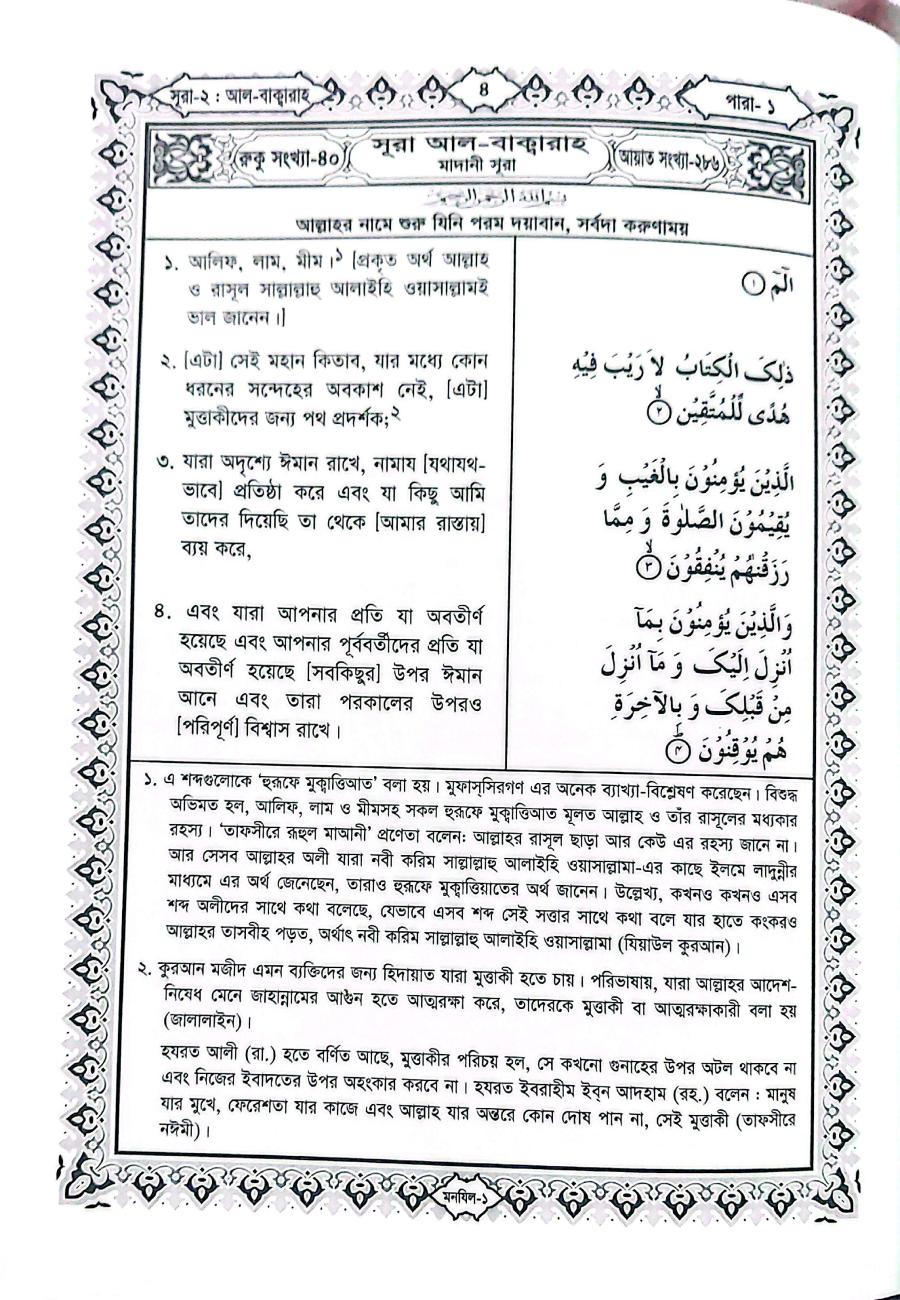 সূরা-২ : আল-বাক্বারাহ
৪
পারা- ১
রুকু সংখ্যা-৪০
সূরা আল-বাক্বারাহ
মাদানী সূরা
আয়াত সংখ্যা-২৮৬
بسم الله الرحمن الرحيم
আল্লাহর নামে শুরু যিনি পরম দয়াবান, সর্বদা করুণাময়
১. আলিফ, লাম, মীম।১ [প্রকৃত অর্থ আল্লাহ
ও রাসূল সাল্লাল্লাহু আলাইহি ওয়াসাল্লামই
ভাল জানেন।]
الٓمّٓ ۝۱
২. [এটা] সেই মহান কিতাব, যার মধ্যে কোন
ধরনের সন্দেহের অবকাশ নেই, [এটা]
মুত্তাকীদের জন্য পথ প্রদর্শক;২
ذٰلِکَ الْکِتَابُ لاَ رَیْبَ فِیْهِ
هُدًی لِّلْمُتَّقِیْن ۝۲ۙ
৩. যারা অদৃশ্যে ঈমান রাখে, নামায [যথাযথ-
ভাবে] প্রতিষ্ঠা করে এবং যা কিছু আমি
তাদের দিয়েছি তা থেকে [আমার রাস্তায়]
ব্যয় করে,
الَّذِیْنَ یُؤْمِنُوْنَ بِالْغَیْبِ وَ
یُقِیْمُوْنَ الصَّلٰوةَ وَ مِمَّا
رَزَقْنٰهُمْ یُنْفِقُوْنَ ۝۳ۙ
৪. এবং যারা আপনার প্রতি যা অবতীর্ণ
হয়েছে এবং আপনার পূর্ববর্তীদের প্রতি যা
অবতীর্ণ হয়েছে [সবকিছুর] উপর ঈমান
আনে এবং তারা পরকালের উপরও
[পরিপূর্ণ] বিশ্বাস রাখে।
وَالَّذِیْنَ یُؤْمِنُوْنَ بِمَآ
اُنْزِلَ اِلَیْکَ وَ مَآ اُنْزِلَ
مِنْ قَبْلِکَ وَ بِالْآخِرَةِ
هُمْ یُوْقِنُوْنَ ۝۴ؕ
১. এ শব্দগুলোকে ‘হুরূফে মুক্বাত্তিআত’ বলা হয়। মুফাস্‌সিরগণ এর অনেক ব্যাখ্যা-বিশ্লেষণ করেছেন। বিশুদ্ধ
অভিমত হল, আলিফ, লাম ও মীমসহ সকল হুরূফে মুক্বাত্তিআত মূলত আল্লাহ ও তাঁর রাসূলের মধ্যকার
রহস্য। ‘তাফসীরে রূহুল মাআনী’ প্রণেতা বলেন: আল্লাহর রাসূল ছাড়া আর কেউ এর রহস্য জানে না।
আর সেসব আল্লাহর অলী যারা নবী করিম সাল্লাল্লাহু আলাইহি ওয়াসাল্লামা-এর কাছে ইলমে লাদুন্নীর
মাধ্যমে এর অর্থ জেনেছেন, তারাও হুরূফে মুক্বাত্তিয়াতের অর্থ জানেন। উল্লেখ্য, কখনও কখনও এসব
শব্দ অলীদের সাথে কথা বলেছে, যেভাবে এসব শব্দ সেই সত্তার সাথে কথা বলে যার হাতে কংকরও
আল্লাহর তাসবীহ পড়ত, অর্থাৎ নবী করিম সাল্লাল্লাহু আলাইহি ওয়াসাল্লামা (যিয়াউল কুরআন)।
২. কুরআন মজীদ এমন ব্যক্তিদের জন্য হিদায়াত যারা মুত্তাকী হতে চায়। পরিভাষায়, যারা আল্লাহর আদেশ-
নিষেধ মেনে জাহান্নামের আগুন হতে আত্মরক্ষা করে, তাদেরকে মুত্তাকী বা আত্মরক্ষাকারী বলা হয়
(জালালাইন)।
হযরত আলী (রা.) হতে বর্ণিত আছে, মুত্তাকীর পরিচয় হল, সে কখনো গুনাহের উপর অটল থাকবে না
এবং নিজের ইবাদতের উপর অহংকার করবে না। হযরত ইবরাহীম ইব্‌ন আদহাম (রহ.) বলেন : মানুষ
যার মুখে, ফেরেশতা যার কাজে এবং আল্লাহ যার অন্তরে কোন দোষ পান না, সেই মুত্তাকী (তাফসীরে
নঈমী)।
মনযিল-১